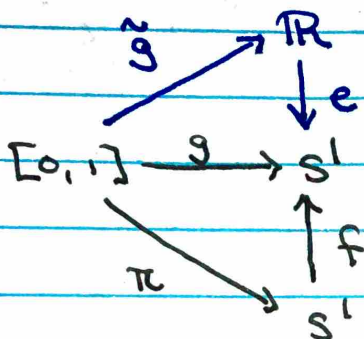 g̃ ℝ
e
[0,1] g S¹
π f
S¹